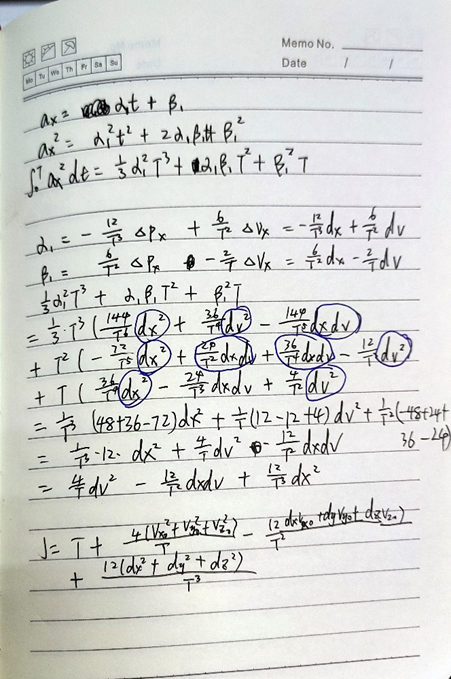 Memo No.
Mo Tu We Th Fr Sa Su
Date / /
ax = α₁t + β₁
ax² = α₁²t² + 2α₁β₁t + β₁²
∫₀ᵀ ax² dt = 1/3 α₁²T³ + α₁β₁T² + β₁²T
α₁ = -12/T³ ΔPx + 6/T² ΔVx = -12/T³ dx + 6/T² dv
β₁ = 6/T² ΔPx - 2/T ΔVx = 6/T² dx - 2/T dv
1/3 α₁²T³ + α₁β₁T² + β₁²T
= 1/3 · T³ (144/T⁶ dx² + 36/T⁴ dv² - 144/T⁵ dxdv)
+ T² (-72/T⁵ dx² + 24/T⁴ dxdv + 36/T⁴ dxdv - 12/T³ dv²)
+ T (36/T⁴ dx² - 24/T³ dxdv + 4/T² dv²)
= 1/T³ (48+36-72) dx² + 1/T (12-12+4) dv² + 1/T² (-48+24+
36-24)
= 1/T³ · 12 · dx² + 4/T dv² - 12/T² dxdv
= 4/T dv² - 12/T² dxdv + 12/T³ dx²
J = T + 4(Vx₀²+Vy₀²+Vz₀²)/T - 12(dxVx₀+dyVy₀+dzVz₀)/T²
+ 12(dx²+dy²+dz²)/T³